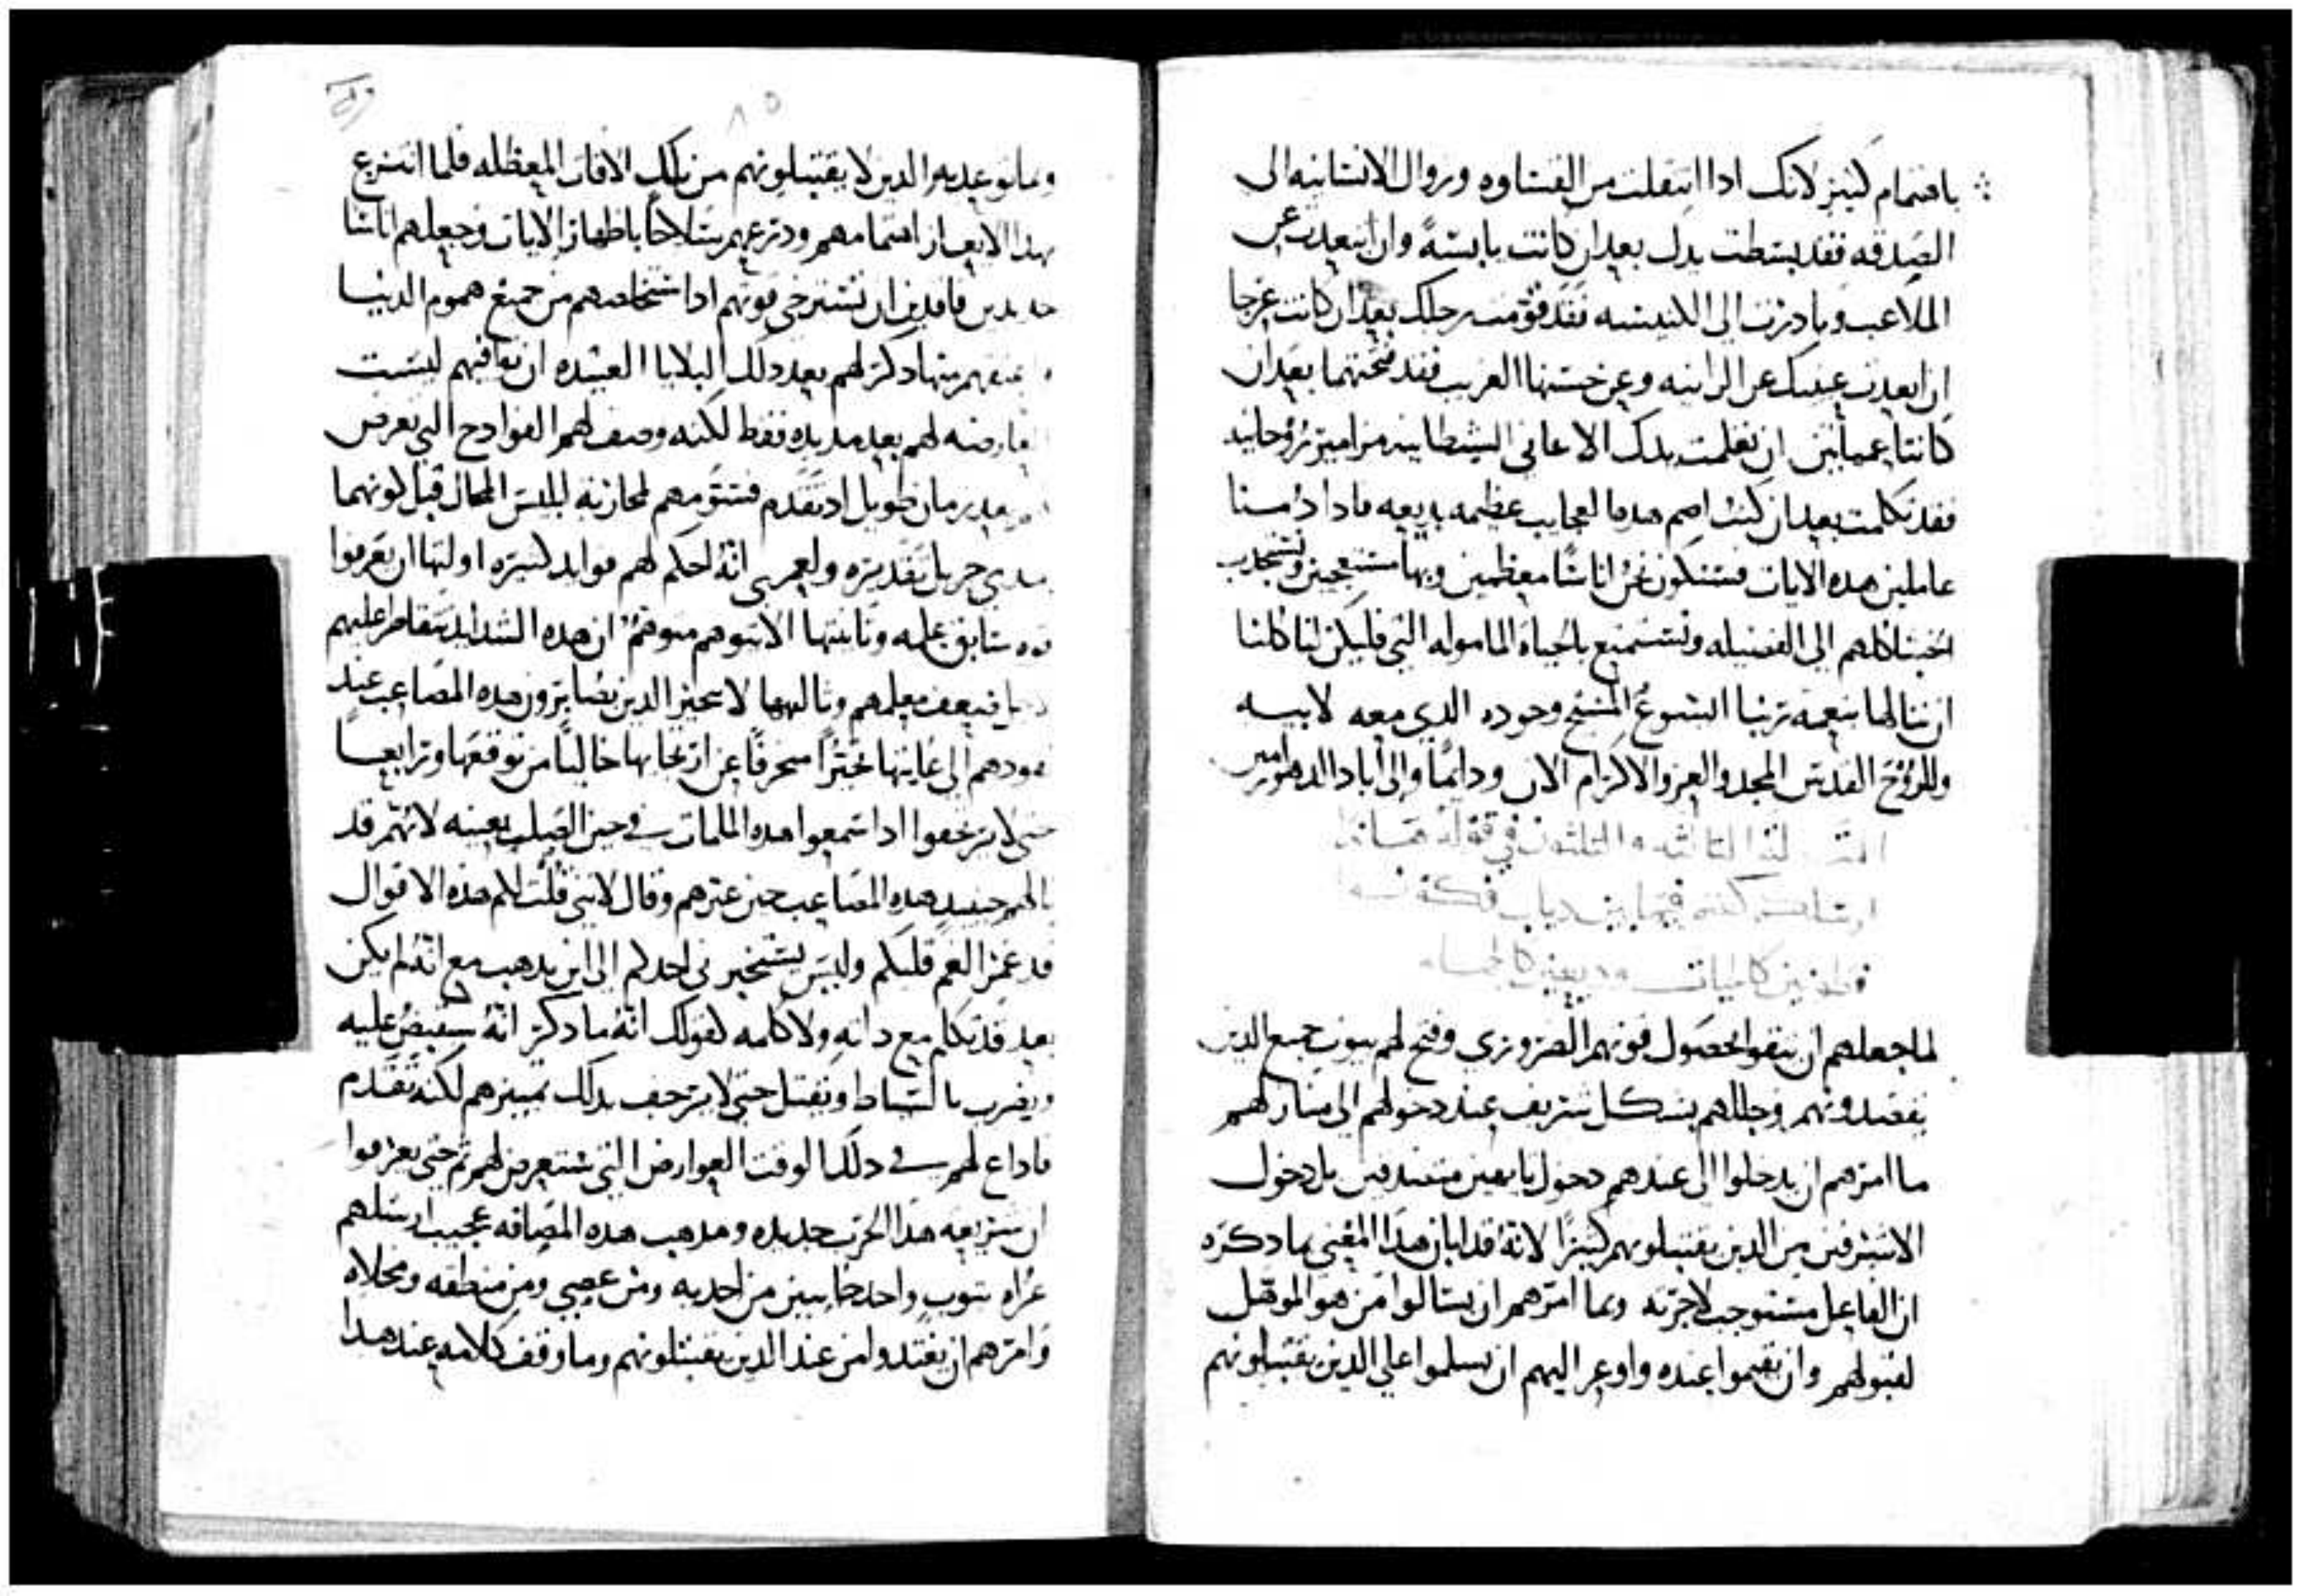 باهتمام كثير لانك ادا انتقلت من القساوه وزوال الانسانيه الى
الصدقه فقد بسطت يدك بعد ان كانت يابسةً وان ابتعدت عن
الملاعب وبادرت الى الكنيسه فقد قومت رجلك بعد ان كانت عرجا
ان ابعدت عينيك عن الزانيه وعن حسنها الغريب فقد فتحتهما بعد ان
كانتا عميانتين ان تعلمت بدل الاغاني الشيطانيه مزامير روحانيه
فقد تكلمت بعد ان كنت اصم هده العجايب عظيمه بديعه فادا دمنا
عاملين هده الايات فسنكون نحن اناسًا معظمين وبها مستعجبين ونستجدب
الخبثا كلهم الى الفضيله ونستمتع بالحياه الماموله التي فليكن لنا كلنا
ان ننالها بنعمة ربنا ايسوع المسيح وجوده الدي معه لابيه
وللروح القدس المجد والعز والاكرام الان ودايمًا والى اباد الدهور امين
المقالة الثالثه والثلثون في قوله هاندا
ارسلكم كغنم فيما بين دياب فكونوا
فهمين كالحيات ووديعين كالحمام
لما جعلهم ان يثقوا لحصول قوتهم الضروري وفتح لهم بيوت جميع الدين
يقصدونهم وجللهم بشكل شريف عند دخولهم الى منازلهم
ما امرهم ان يدخلوا الى عندهم دخول تايهين متصدقين بل دخول
الاشرفين من الدين يقتبلونهم كثيرًا لانه قد ابان هدا المعنى بما دكره
ان الفاعل مستوجب لاجرته وبما امرهم ان يسالوا من هو الموهل
لقبولهم وان يقيموا عنده واوعز اليهم ان يسلموا على الدين يقتبلونهم
٨٥
وبما توعد به الدين لا يقتبلونهم من تلك الافات المعظله فلما انتزع
بهدا الايعاز اهتمامهم ودرعهم سلاحًا باظهار الايات وجعلهم اناسًا
حديدين فاقدين ان تسترخي قوتهم ادا استخلصهم من جميع هموم الدنيا
منها دكر لهم بعد دلك البلايا العتيده ان توافيهم ليست
العارضه لهم بعد مديده فقط لكنه وصف لهم الفوادح التي تعرض
بعد زمان طويل اد تقدم فستقومهم لمحاربة ابليس المحال قبل كونهما
جزيل تقديره ولعمري انه احكم لهم فوايد كثيره اولتها ان يعرفوا
قوة سابق علمه وثانيتها الا يتوهم متوهمٌ ان هده الشدايد تتقاطر عليهم
ضعف معلمهم وثالثها لا يتحير الدين يصابرون هده المصاعب عند
الى غايتها تحيرًا منحرفًا عن ارتجايها خاليًا من توقعها ورابعها
حتى لا يرتجفوا ادا سمعوا هده الملمات في حين الصلب بعينه لانهم قد
حينيد هده المصاعب حين عيرهم وقال لانني قلت لكم هده الاقوال
قد غمر الغم قلبكم وليس يستخبرني احدكم الى اين يدهب مع انه لم يكن
بعد قد تكلم مع داته ولا كلمه لقولك انه ما دكر انه سيقبض عليه
ويضرب بالسياط ويقتل حتى لا يرتجف بدلك تمييزهم لكنه تقدم
فاداع لهم في دلك الوقت العوارض التي ستعرض لهم ثم حتى يعرفوا
ان شريعه هدا الحرب جديده ومدهب هده المصافه عجيب ارسلهم
عراه بثوب واحد خايبين من احديه ومن عصي ومن منطقه ومخلاه
وامرهم ان يغتدوا من عند الدين يقتبلونهم وما وقف كلامه عند هدا